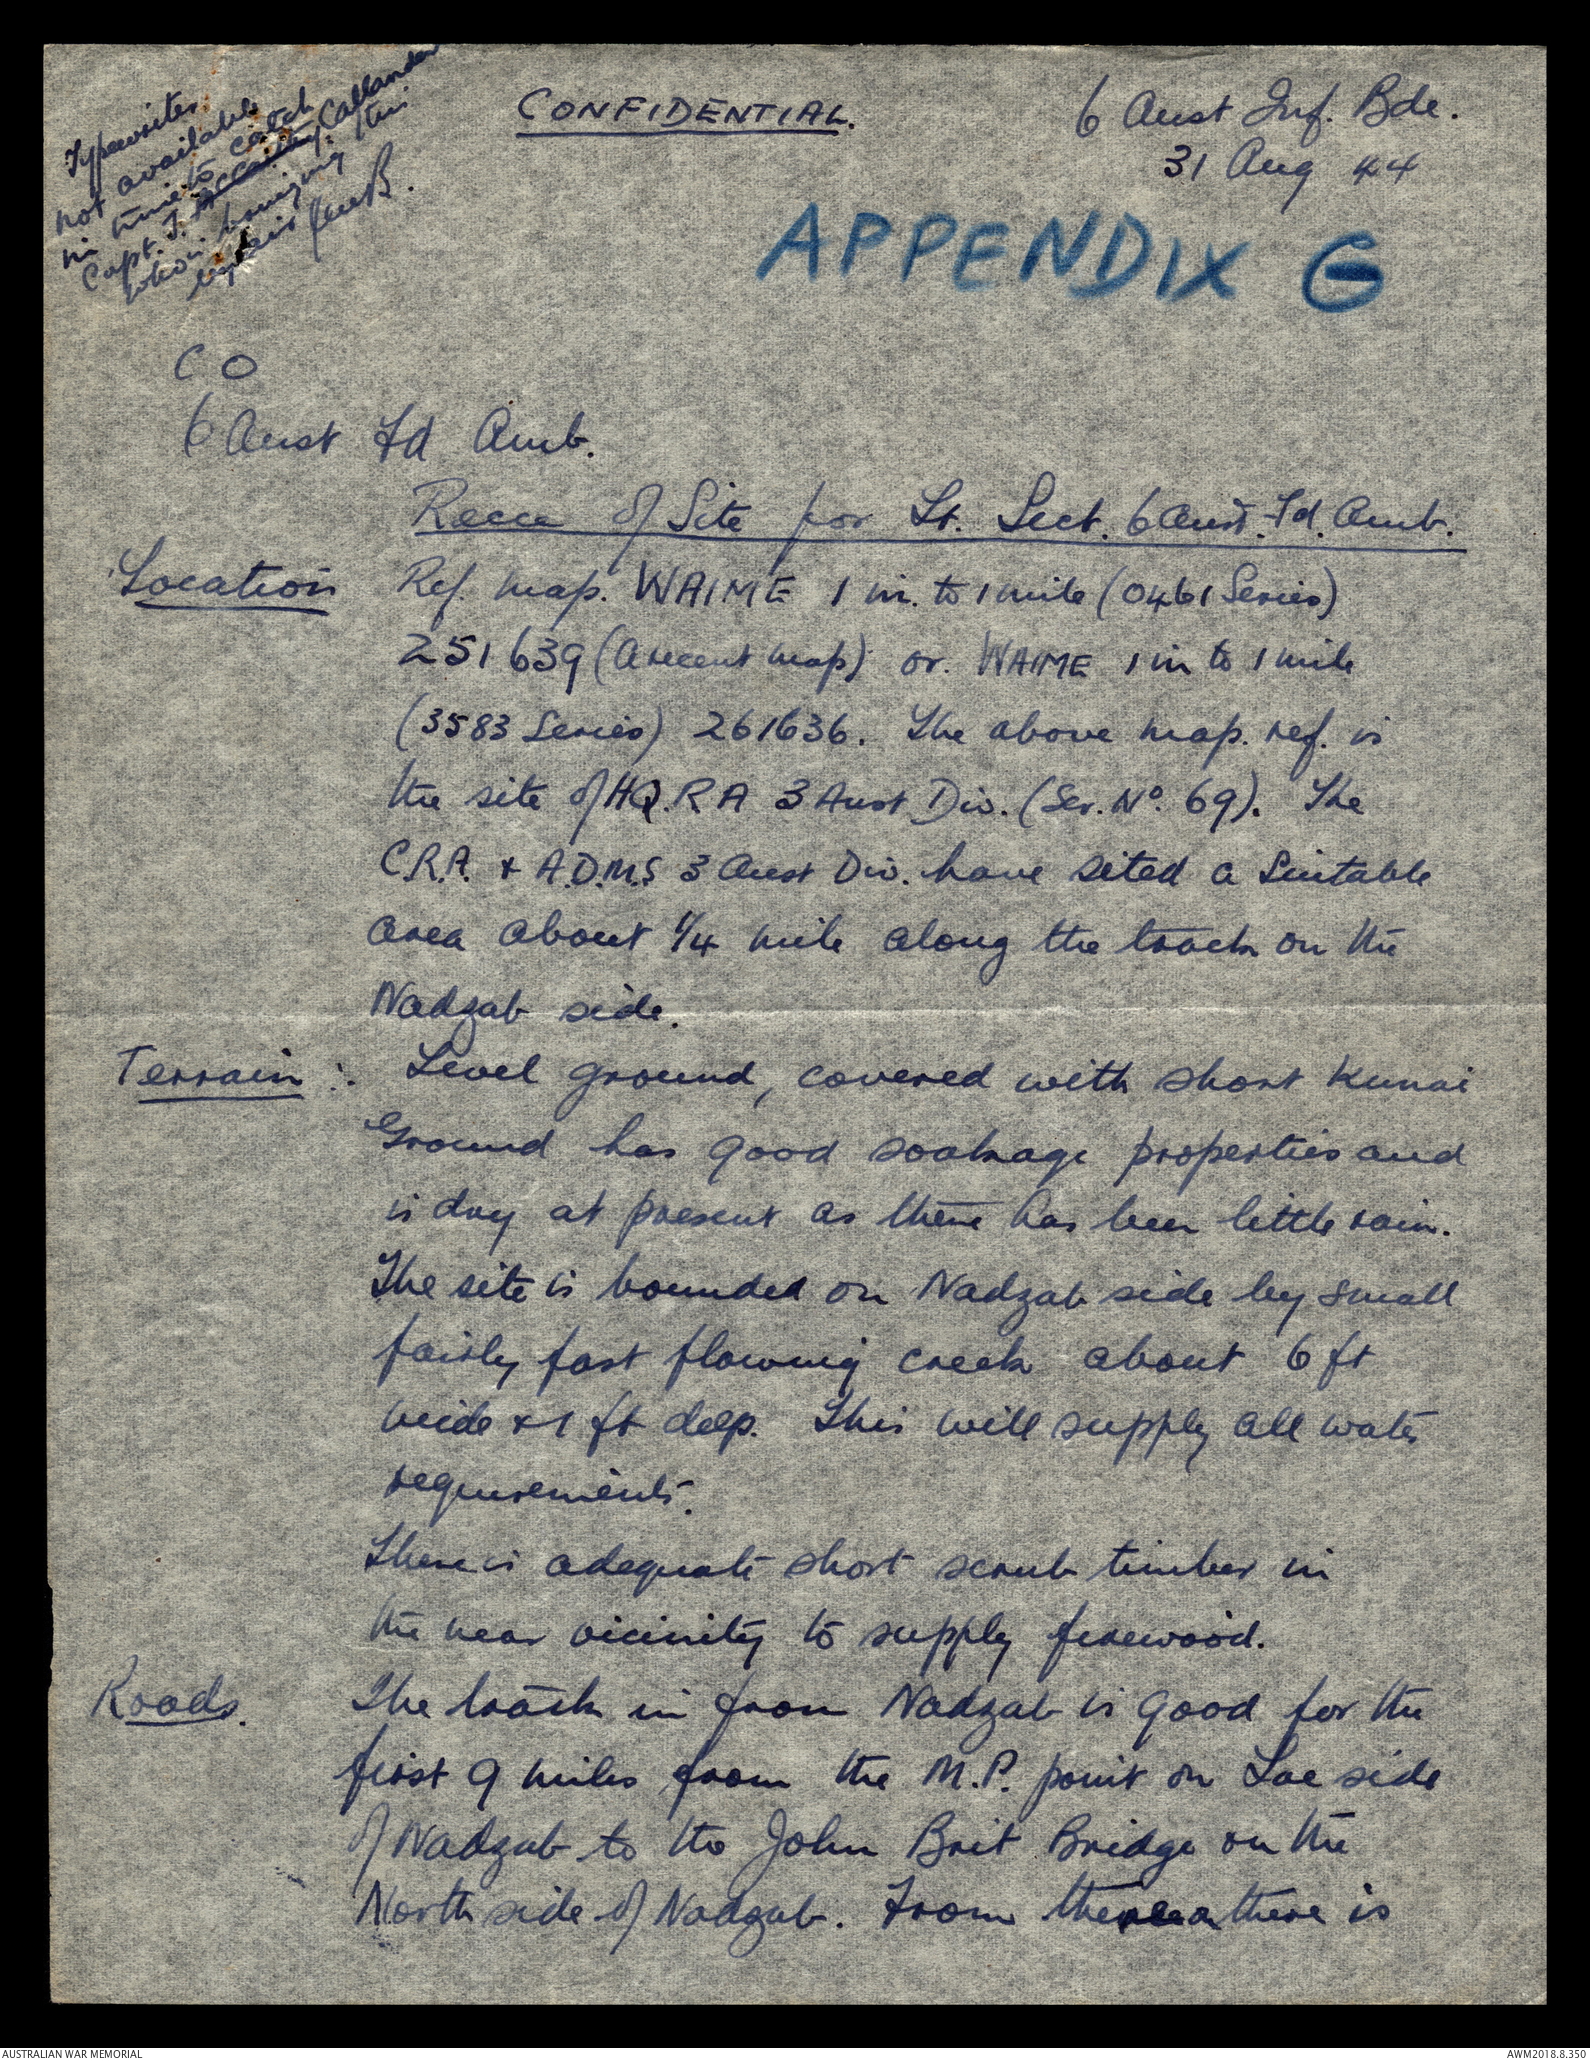 Typewriter
not available
in time to catch
Capt. J. McCarthy. Callander
who is bringing this
CONFIDENTIAL.
6 Aust Inf. Bde.
31 Aug 44
APPENDIX G
C O
6 Aust Fd Amb.
Recce of Site for Lt. Sect. 6 Aust. Fd. Amb.
Location Ref. map. WAIME 1 in. to 1 mile (0461 Series)
251639 (A recent map) or. WAIME 1 in to 1 mile
(3583 Series) 261636. The above map. ref. is
the site of HQ. R A 3 Aust Div. (Ser. No. 69). The
C.R.A. + A.D.M.S 3 Aust Div. have sited a suitable
area about 1/4 mile along the track on the
Nadzab side.
Terrain :. Level ground, covered with short Kunai
Ground has good soakage properties and
is dry at present as there has been little rain.
The site is bounded on Nadzab side by small
fairly fast flowing creek about 6 ft
wide + 1 ft deep. This will supply all water
requirements.
There is adequate short scrub timber in
the near vicinity to supply firewood.
Roads. The track in from Nadzab is good for the
first 9 miles from the M.P. point on Lae side
of Nadzab to the John Brit Bridge on the
North side of Nadzab. From there is
AUSTRALIAN WAR MEMORIAL
AWM2018.8.350